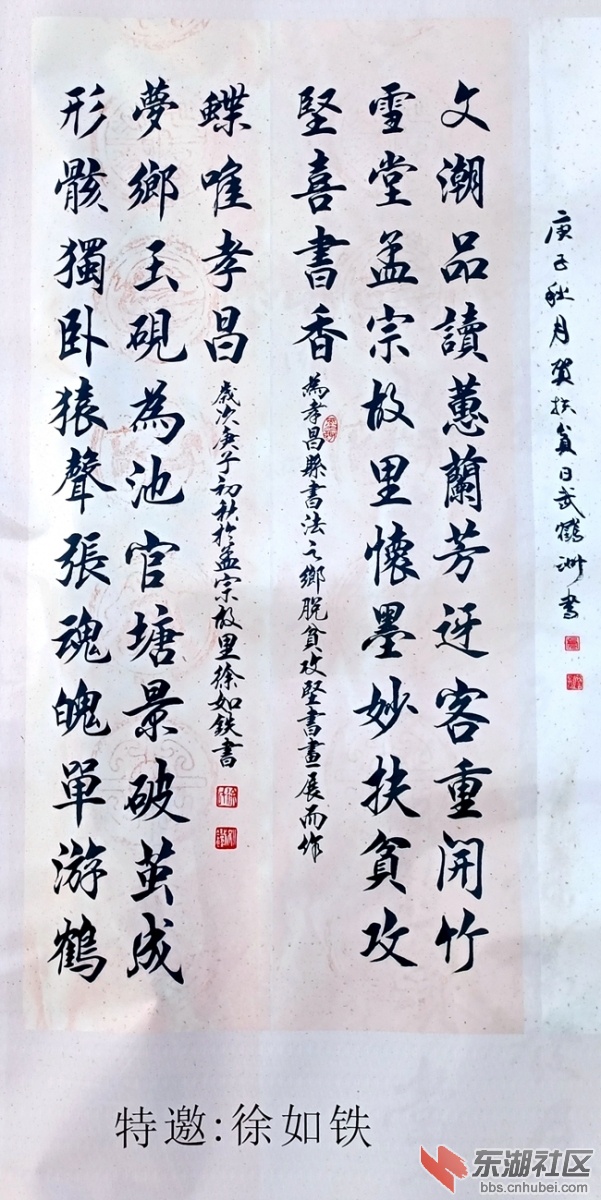 庚子秋月贺扶貧日武鶴洲書
文潮品讀蕙蘭芳迓客重開竹
雪堂孟宗故里懷墨妙扶貧攻
堅喜書香
為孝昌縣書法之鄉脫貧攻堅書畫展而作
形骸獨卧猿聲張魂魄單游鶴
夢鄉玉硯為池官塘景破茧成
蝶唯孝昌
歲次庚子初秋於孟宗故里徐如鉄書
特邀:徐如铁
东湖社区
bbs.cnhubei.com